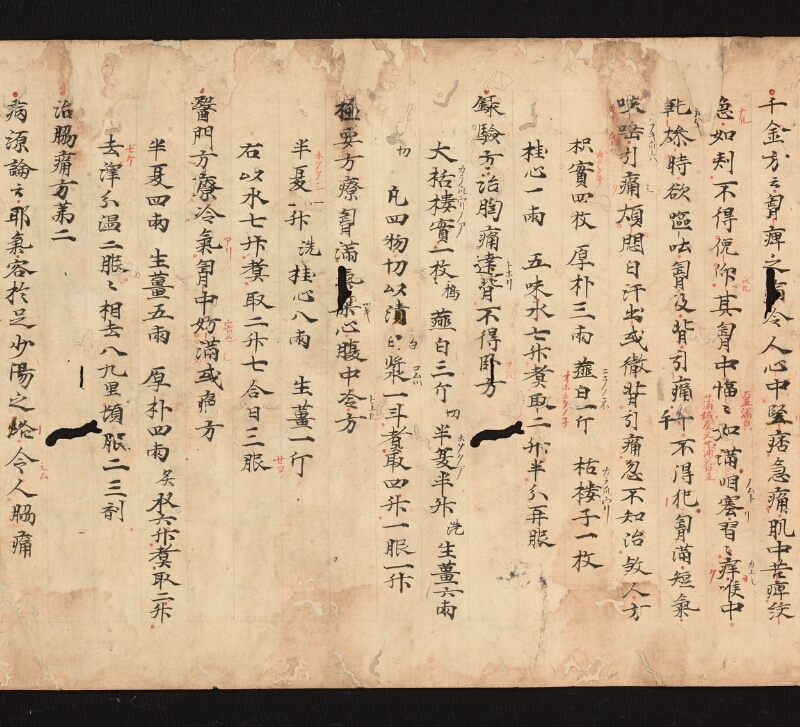 千金方云胷痺之病令人心中堅痞急痛肌中苦痺絞
急如刾不得俛仰其胷中愊〻如滿咽塞習〻痒喉中
乹燥時欲嘔吐胷及背引痛手不得犯胷滿短氣
咳唾引痛煩悶白汗出或徹背引痛忽不知治煞人方
枳實四枚 厚朴三兩 薤白一斤 枯樓子一枚
桂心一兩 五味水七升煑取二升半分再服
錄驗方治胸痛達背不得卧方
大枯樓實一枚 薤白三斤 切 半夏半升 洗 生薑六兩
切 凡四物切以漬白漿一斗煑取四升一服一升
極要方療胷滿氣 心腹中冷方
半夏一升 洗 桂心八兩 生薑一斤
右以水七升煑取二升七合日三服
醫門方療冷氣胷中妨滿或疼方
半夏四兩 生薑五兩 厚朴四兩 炙 水六升煑取二升
去滓分溫二服〻相去八九里頃服二三劑
治脇痛方第二
病源論云耶氣客於足少陽之絡令人脇痛